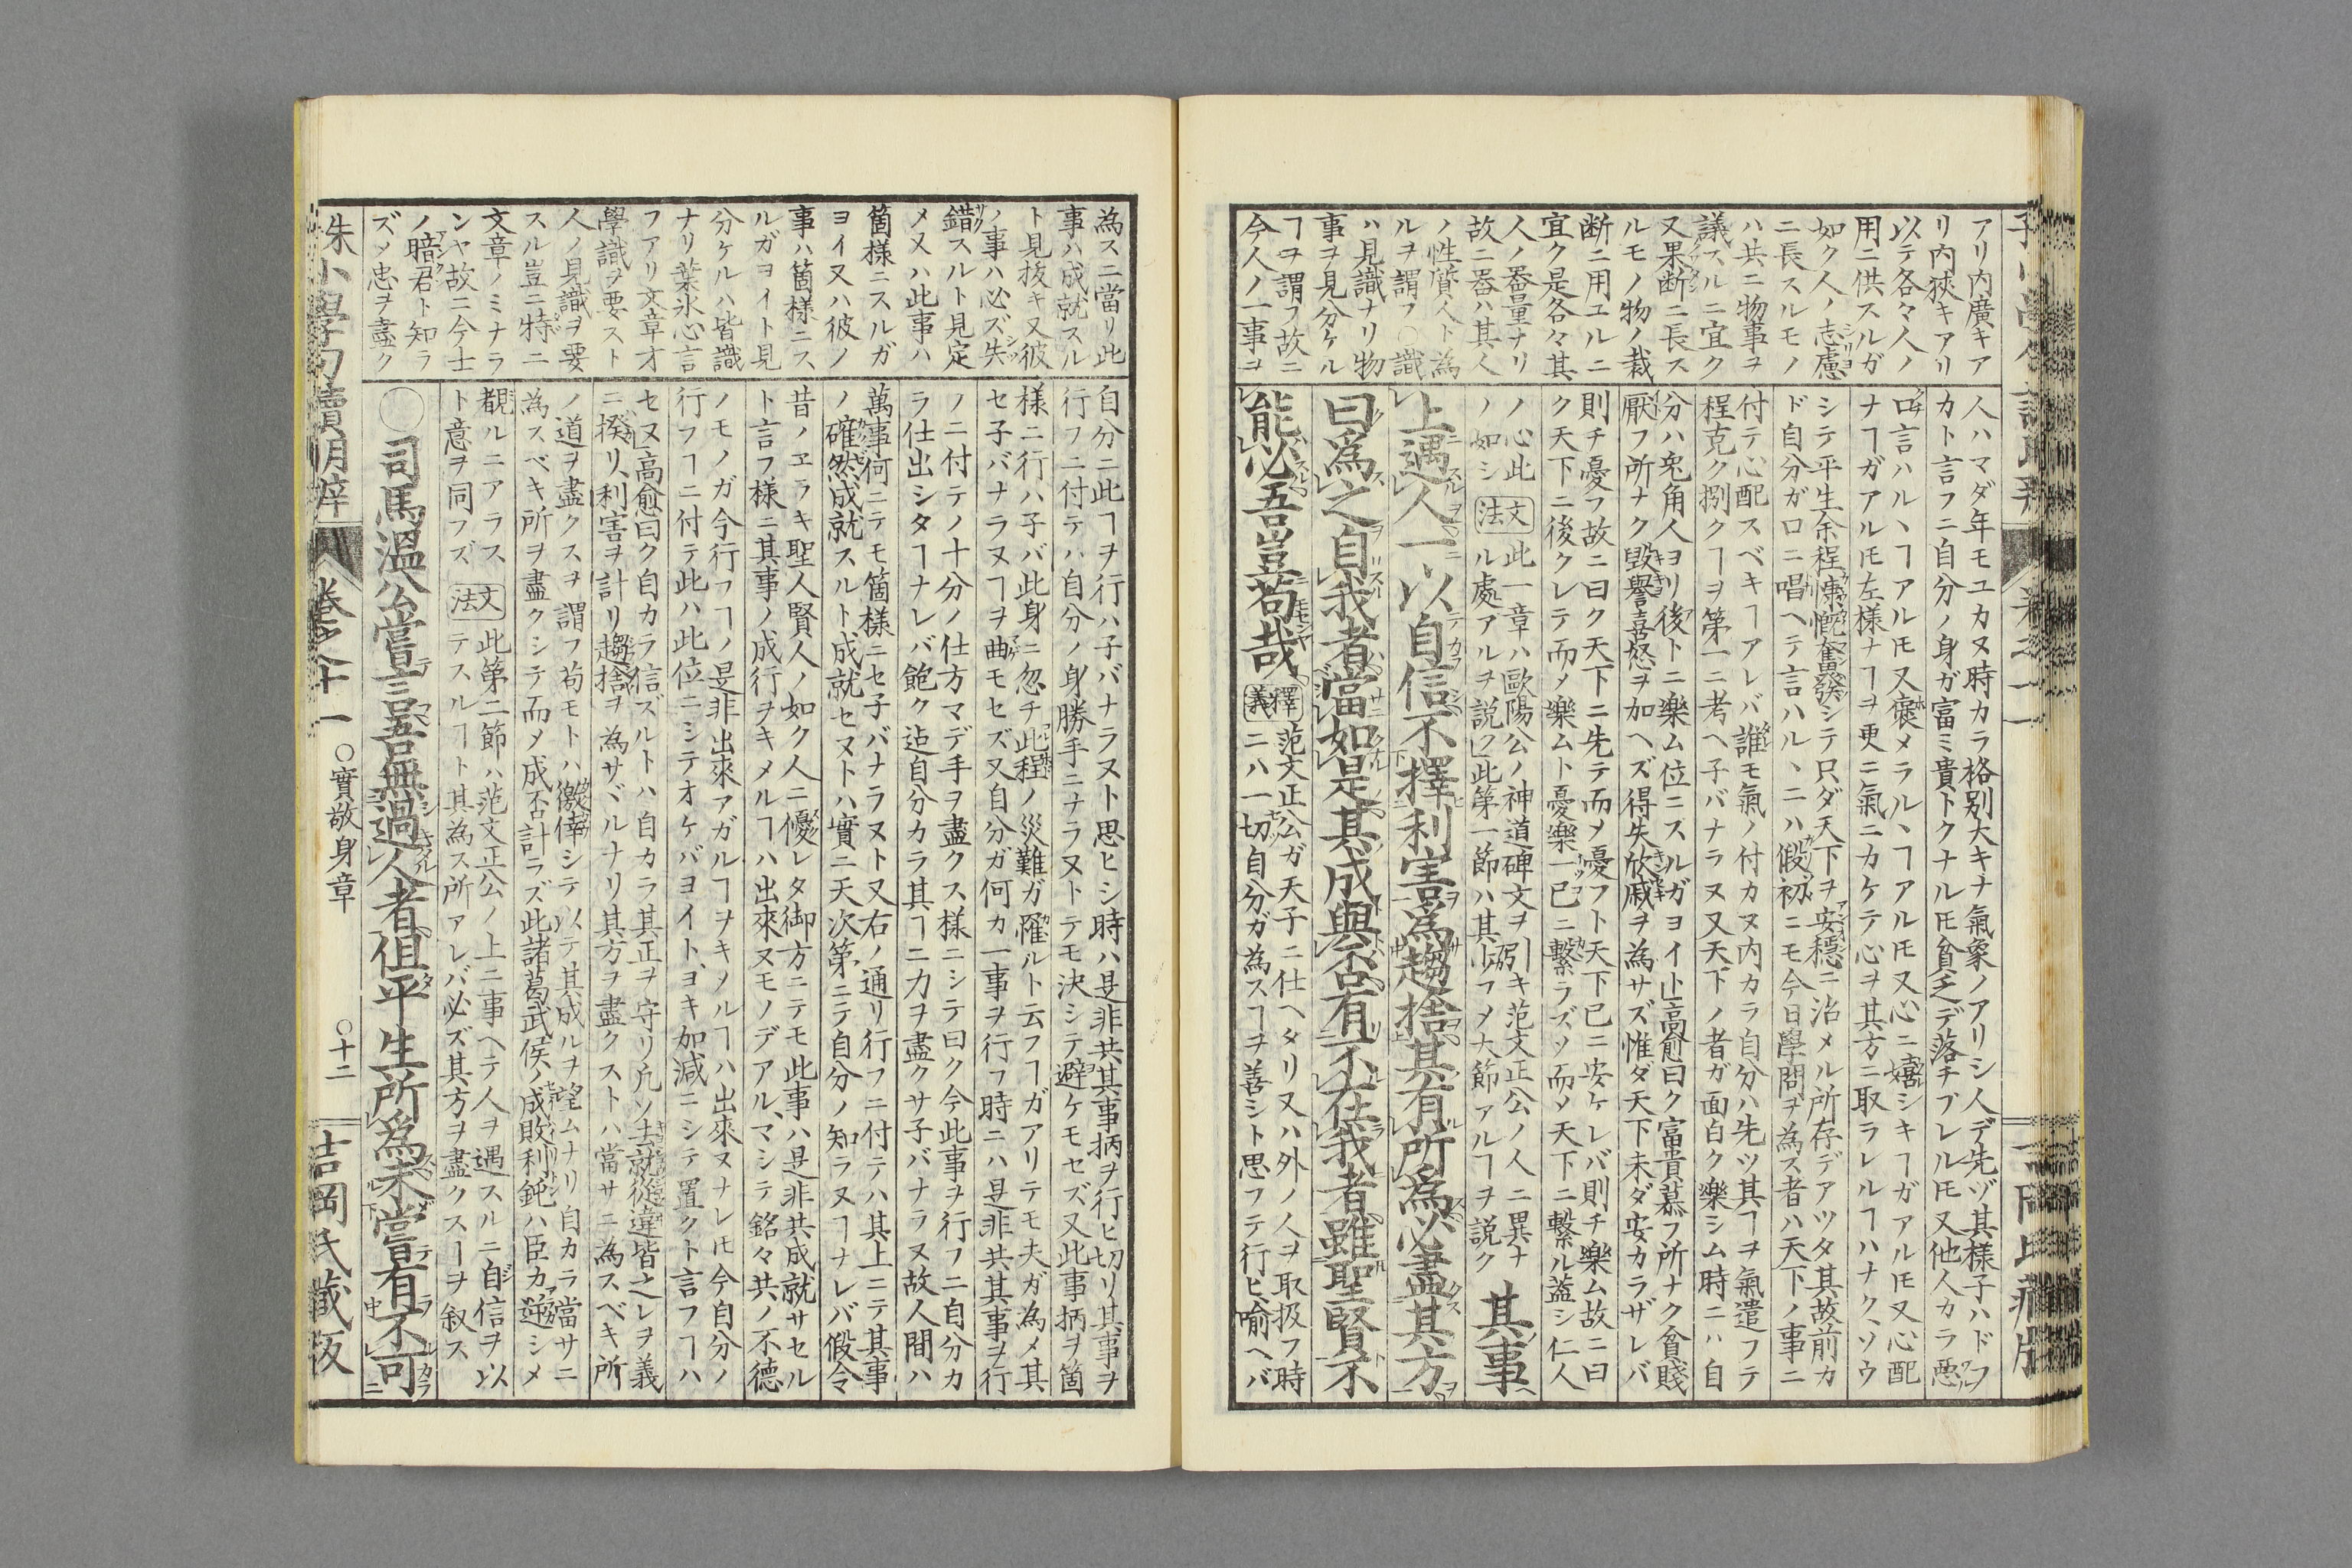 アリ内廣キア
リ内狹キアリ
以テ各々人ノ
用ニ供スルガ
如ク人ノ志慮
ニ長スルモノ
ハ共ニ物事ヲ
議スルニ宜ク
又果断ニ長ス
ルモノ物ノ裁
断ニ用ユルニ
宜ク是各々其
人ノ器量ナリ
故ニ器ハ其人
ノ性質人ト為
ルヲ謂フ○識
ハ見識ナリ物
事ヲ見分ケル
ヿヲ謂フ故ニ
今人ノ一事ヲ
人ハマダ年モユカヌ時カラ格別大キナ氣象ノアリシ人デ先ヅ其様子ハドフ
カト言フニ自分ノ身ガ富ミ貴トクナルㇳモ貧乏デ落チブレルㇳモ又他人カラ悪
口言ハル丶ヿアルㇳモ又褒メラル丶ヿアルㇳモ又心ニ嬉シキヿガアルㇳモ又心配
ナヿガアルㇳモ左様ナヿヲ更ニ氣ニカケテ心ヲ其方ニ取ラレルヿハナク、ソウ
シテ平生余程慷慨奮發シテ只ダ天下ヲ安穏ニ治メル所存デアツタ其故前カ
ド自分ガ口ニ唱ヘテ言ハル丶ニハ假初ニモ今日學問ヲ為ス者ハ天下ノ事ニ
付テ心配スベキヿアレバ誰モ氣ノ付カヌ内カラ自分ハ先ツ其ヿヲ氣遣フテ
程克ク捌クヿヲ第一ニ考ヘ子バナラヌ又天下ノ者ガ面白ク樂シム時ニハ自
分ハ兎角人ヨリ後トニ樂ム位ニスルガヨイト高愈曰ク富貴慕フ所ナク貧賤
厭フ所ナク毀譽喜怒ヲ加ヘズ得失欣戚ヲ為サズ惟ダ天下未ダ安カラザレバ
則チ憂フ故ニ曰ク天下ニ先テ而メ憂フト天下已ニ安ケレバ則チ樂ム故ニ曰
ク天下ニ後クレテ而メ樂ムト憂樂一己ニ繫ラズソ而メ天下ニ繫ル蓋シ仁人
ノ心此
ノ如シ
文法
此一章ハ歐陽公ノ神道碑文ヲ引キ范文正公ノ人ニ異ナ
ル處アルヲ説ク此第一節ハ其少フメ大節アルヿヲ説ク
其事
上遇人一以自信不擇利害為趨捨其有所為必盡其方
曰為之自我者當如是其成與否有不在我者雖聖賢不
能必吾豈苟哉
釋義
范文正公ガ天子ニ仕ヘタリ又ハ外ノ人ヲ取扱フ時
ニハ一切自分ガ為スヿヲ善シト思フテ行ヒ喩ヘバ
為スニ當リ此
事ハ成就スル
ト見抜キ又彼
ノ事ハ必ズ失
錯スルト見定
メ又ハ此事ハ
箇様ニスルガ
ヨイ又ハ彼ノ
事ハ箇様ニス
ルガヨイト見
分ケルハ皆識
ナリ葉水心言
フアリ文章オ
學識ヲ要スト
人ノ見識ヲ要
スル豈ニ特ニ
文章ノミナラ
ンヤ故ニ今士
ノ暗君ト知ラ
ズメ忠ヲ盡ク
自分ニ此ヿヲ行ハ子バナラヌト思ヒシ時ハ是非共其事柄ヲ行ヒ切リ其事ヲ
行フニ付テハ自分ノ身勝手ニナラヌトテモ決シテ避ケモセズ又此事柄ヲ箇
様ニ行ハ子バ此身ニ忽チ此程ノ災難ガ罹ルト云フヿガアリテモ夫ガ為メ其
セ子バナラヌヿヲ曲モセズ又自分ガ何カ一事ヲ行フ時ニハ是非共其事ヲ行
ノニ付テノ十分ノ仕方マデ手ヲ盡クス様ニシテ曰ク今此事ヲ行フニ自分カ
ラ仕出シタヿナレバ飽ク迄自分カラ其ヿニ力ヲ盡クサ子バナラヌ故人間ハ
萬事何ニテモ箇様ニセ子バナラヌト又右ノ通リ行フニ付テハ其上ニテ其事
ノ確然成就スルト成就セヌトハ實ニ天次第ニテ自分ノ知ラヌヿナレバ假令
昔ノヱラキ聖人賢人ノ如ク人ニ優レタ御方ニテモ此事ハ是非共成就サセル
ト言フ様ニ其事ノ成行ヲキメルヿハ出來ヌモノデアル、マシテ銘々共ノ不德
ノモノガ今行フヿノ是非出來アガルヿヲキメルヿハ出來ヌナレㇳモ今自分ノ
行フヿニ付テ此ハ此位ニシテオケバヨイト、ヨキ加減ニシテ置クト言フヿハ
セヌ高愈曰ク自カラ信ズルトハ自カラ其正ヲ守リ凡ソ去就從違皆之レヲ義
ニ揆リ、利害ヲ計リ趨捨ヲ為サヾルナリ其方ヲ盡クストハ當サニ為スベキ所
ノ道ヲ盡クスヲ謂フ苟モトハ僥倖シテ以テ其成ルヲ望ムナリ自カラ當サニ
為スベキ所ヲ盡クシテ而メ成否計ラズ此諸葛武侯ノ成敗利鈍ハ臣カ逆シメ
覩ルニアラス
ト意ヲ同フズ
文法
此第二節ハ范文正公ノ上ニ事ヘテ人ヲ遇スルニ自信ヲ以
テスルヿト其為ス所アレバ必ズ其方ヲ盡クスーヲ叙ス
○司馬溫公嘗言吾無過人者但平生所為未嘗有不可
朱小學句讀明辨 卷之十一 ○實敬身章 ○十二 吉岡氏藏板